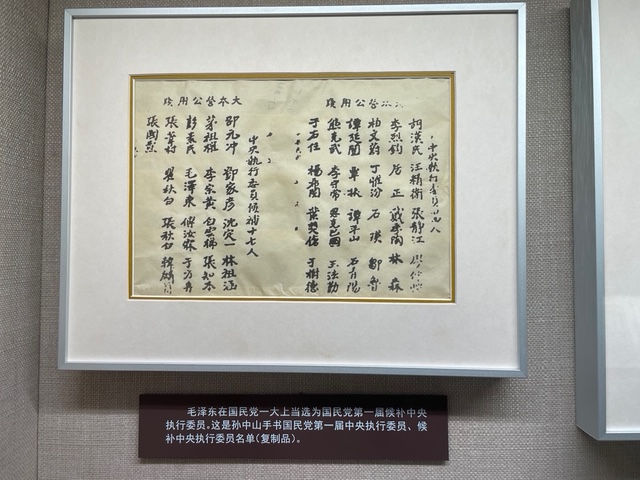 大本營公用牋
中央執行委員廿四人
胡漢民 汪精衛 張靜江 廖仲愷
李烈鈞 居正 戴季陶 林森
柏文蔚 丁惟汾 石瑛 鄒魯
譚延闓 覃振 譚平山 石青陽
熊克武 李守常 恩克巴圖 王法勤
于右任 楊希閔 葉楚傖 于樹德
大本營公用牋
中央執行委員候補十七人
邵元冲 鄧家彥 沈定一 林祖涵
茅祖權 李宗黃 白雲梯 張知本
彭素民 毛澤東 傅汝霖 于方舟
張葦村 瞿秋白 張秋白 韓麟符
張國燾
毛泽东在国民党一大上当选为国民党第一届候补中央
执行委员。这是孙中山手书国民党第一届中央执行委员、候
补中央执行委员名单（复制品）。